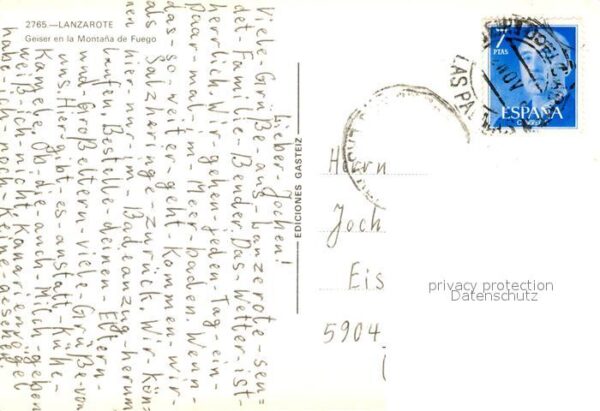 2765.—LANZAROTE
Geiser en la Montaña de Fuego
Lieber Jochen!
Viele-Grüße-aus-Lanzarote-sen=
det-Familie-Bender.Das-Wetter-ist-
herrlich.Wir-gehen-jeden-Tag-ein-
paar-mal-im-Meer-baden.Wenn-
das-so-weiter-geht-kommen-wir-
als-Salzheringe-zurück.Wir-kön=
nen-hier-nur-im-Badeanzug-herum
laufen.Bestelle-deinen-Eltern-
und-Großeltern-viele-Grüße-von-
uns.Hier-gibt-es-anstatt-Kühe-
Kamele.Ob-die-auch-Milch-geben
weiß-ich-nicht.Kanarienvögel
habe-ich-noch-keine-gesehen
EDICIONES GASTEIZ
7
PTAS
ESPAÑA
CORREOS
LAS PAL
NOV
Herrn
Joch
Eis
5904
privacy protection
Datenschutz